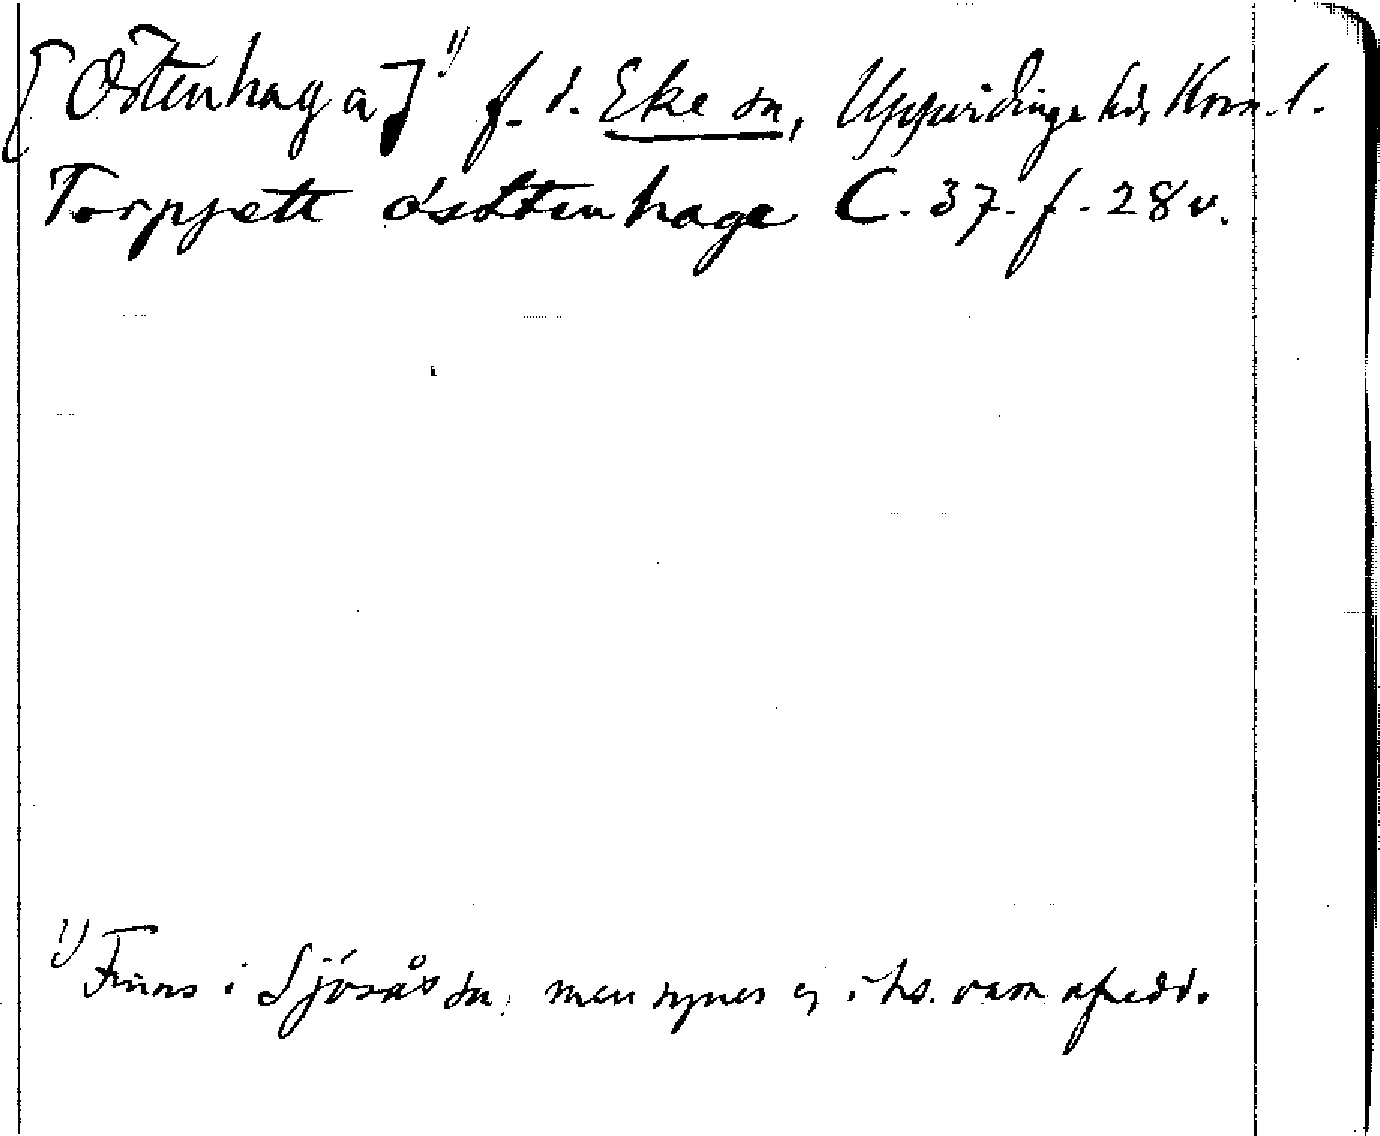 [Östenhaga]¹⁾ f. d. Eke sn, Uppvidinge hd, Kron. l.
Torpsett ósttenhage C. 37. f. 28 v.
¹⁾ Finns i Sjösås sn, men synes ej i hs. vara afsedd.